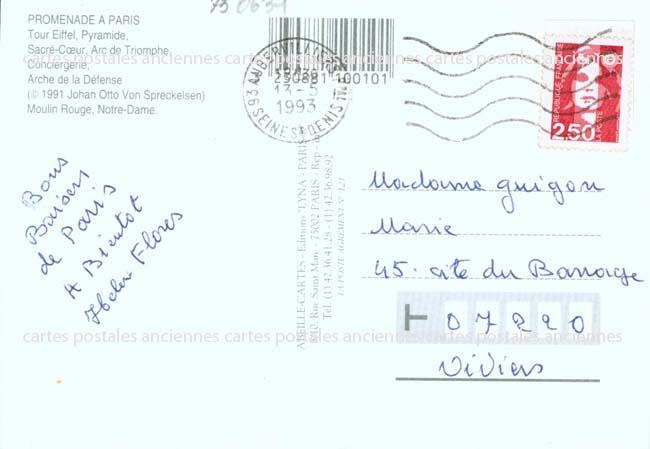 PROMENADE A PARIS
Tour Eiffel, Pyramide,
Sacré-Cœur, Arc de Triomphe,
Conciergerie,
Arche de la Défense
(© 1991 Johan Otto Von Spreckelsen)
Moulin Rouge, Notre-Dame.
93 AUBERVILLIERS
13-5
1993
SEINE ST DENIS
250881 100101
RÉPUBLIQUE FRANÇAISE
LA POSTE
2,50
cartes postales anciennes cartes postales anciennes cartes postales anciennes
Bons
Baisers
de Paris
A Bientot
Flores
ABEILLE-CARTES - Editions "LYNA - PARIS"
8/10, Rue Saint Marc - 75002 PARIS
Tél. (1) 42.36.41.28 - (1) 42.36.98.92
LA POSTE AGREMENT N° 121
Madame Guigon
Marie
45. cite du Barrage
07220
Viviers
cartes postales anciennes cartes postales anciennes cartes postales anciennes